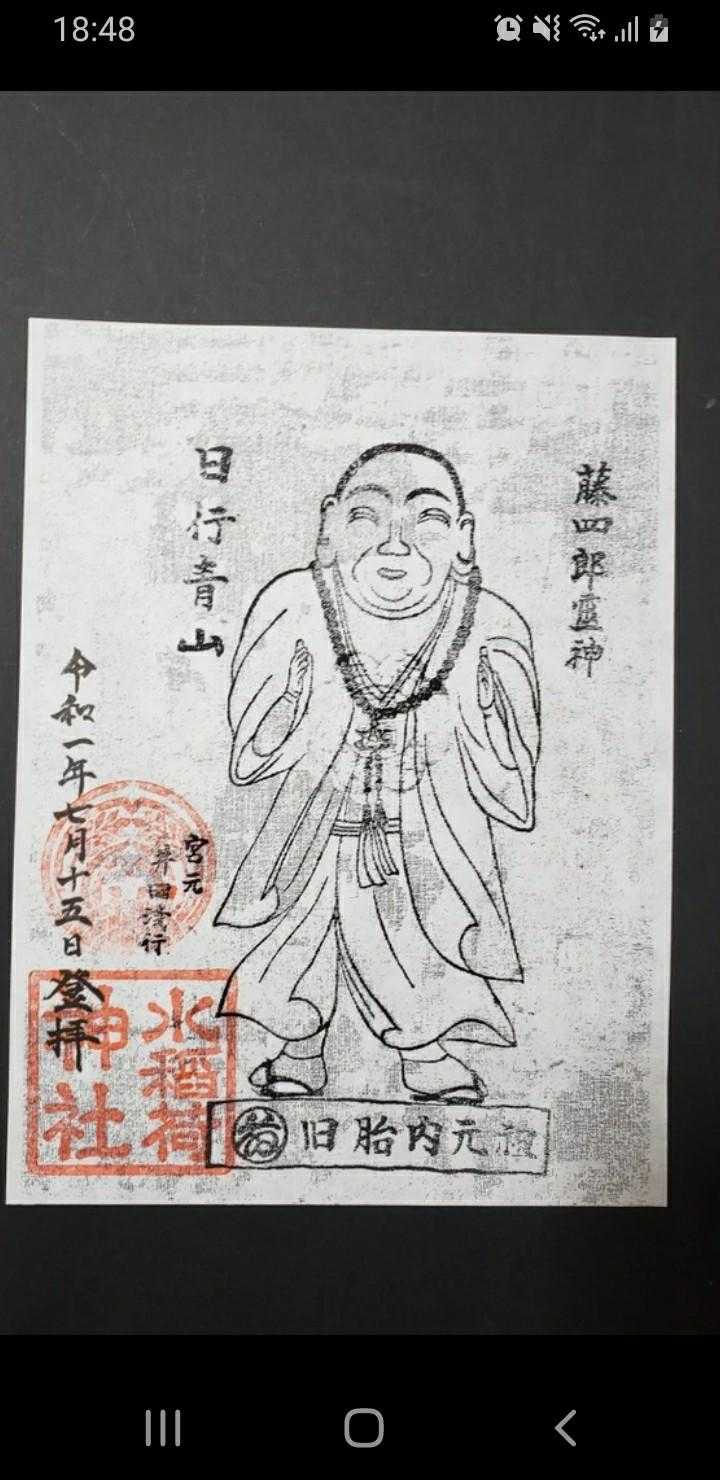 18:48
藤四郎霊神
日行青山
宮元
井田清行
令和一年七月十五日登拝
水稲荷
神社
旧胎内元祖